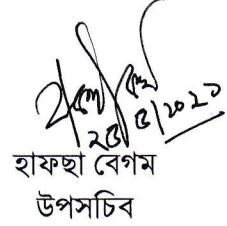 ২৫/৫/২০২১
হাফছা বেগম
উপসচিব